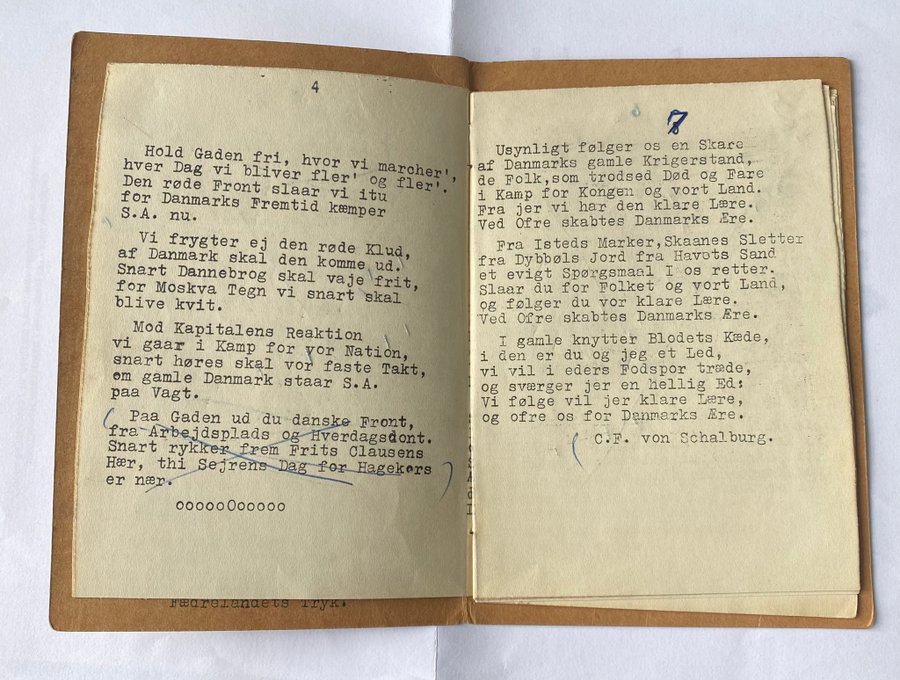 4
Hold Gaden fri, hvor vi marcher',
hver Dag vi bliver fler' og fler'.
Den røde Front slaar vi itu
for Danmarks Fremtid kæmper
S.A. nu.
Vi frygter ej den røde Klud,
af Danmark skal den komme ud.
Snart Dannebrog skal vaje frit,
for Moskva Tegn vi snart skal
blive kvit.
Mod Kapitalens Reaktion
vi gaar i Kamp for vor Nation,
snart høres skal vor faste Takt,
om gamle Danmark staar S.A.
paa Vagt.
( Paa Gaden ud du danske Front,
fra Arbejdsplads og Hverdagsdont.
Snart rykker frem Frits Clausens
Hær, thi Sejrens Dag for Hagekors )
er nær.
oooooOooooo
Fædrelandets Tryk.
7
Usynligt følger os en Skare
af Danmarks gamle Krigerstand,
de Folk,som trodsed Død og Fare
i Kamp for Kongen og vort Land.
Fra jer vi har den klare Lære.
Ved Ofre skabtes Danmarks Ære.
Fra Isteds Marker,Skaanes Sletter
fra Dybbøls Jord fra Havets Sand
et evigt Spørgsmaal I os retter.
Slaar du for Folket og vort Land,
og følger du vor klare Lære.
Ved Ofre skabtes Danmarks Ære.
I gamle knytter Blodets Kæde,
i den er du og jeg et Led,
vi vil i eders Fodspor træde,
og sværger jer en hellig Ed:
Vi følge vil jer klare Lære,
og ofre os for Danmarks Ære.
( C.F. von Schalburg.